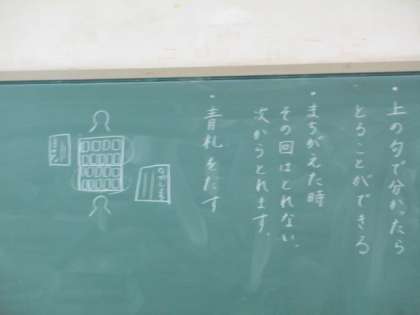 ・上の句で分かったら
とることができる
・まちがえた時
その回はとれない。
次からとれます。
・青札をだす